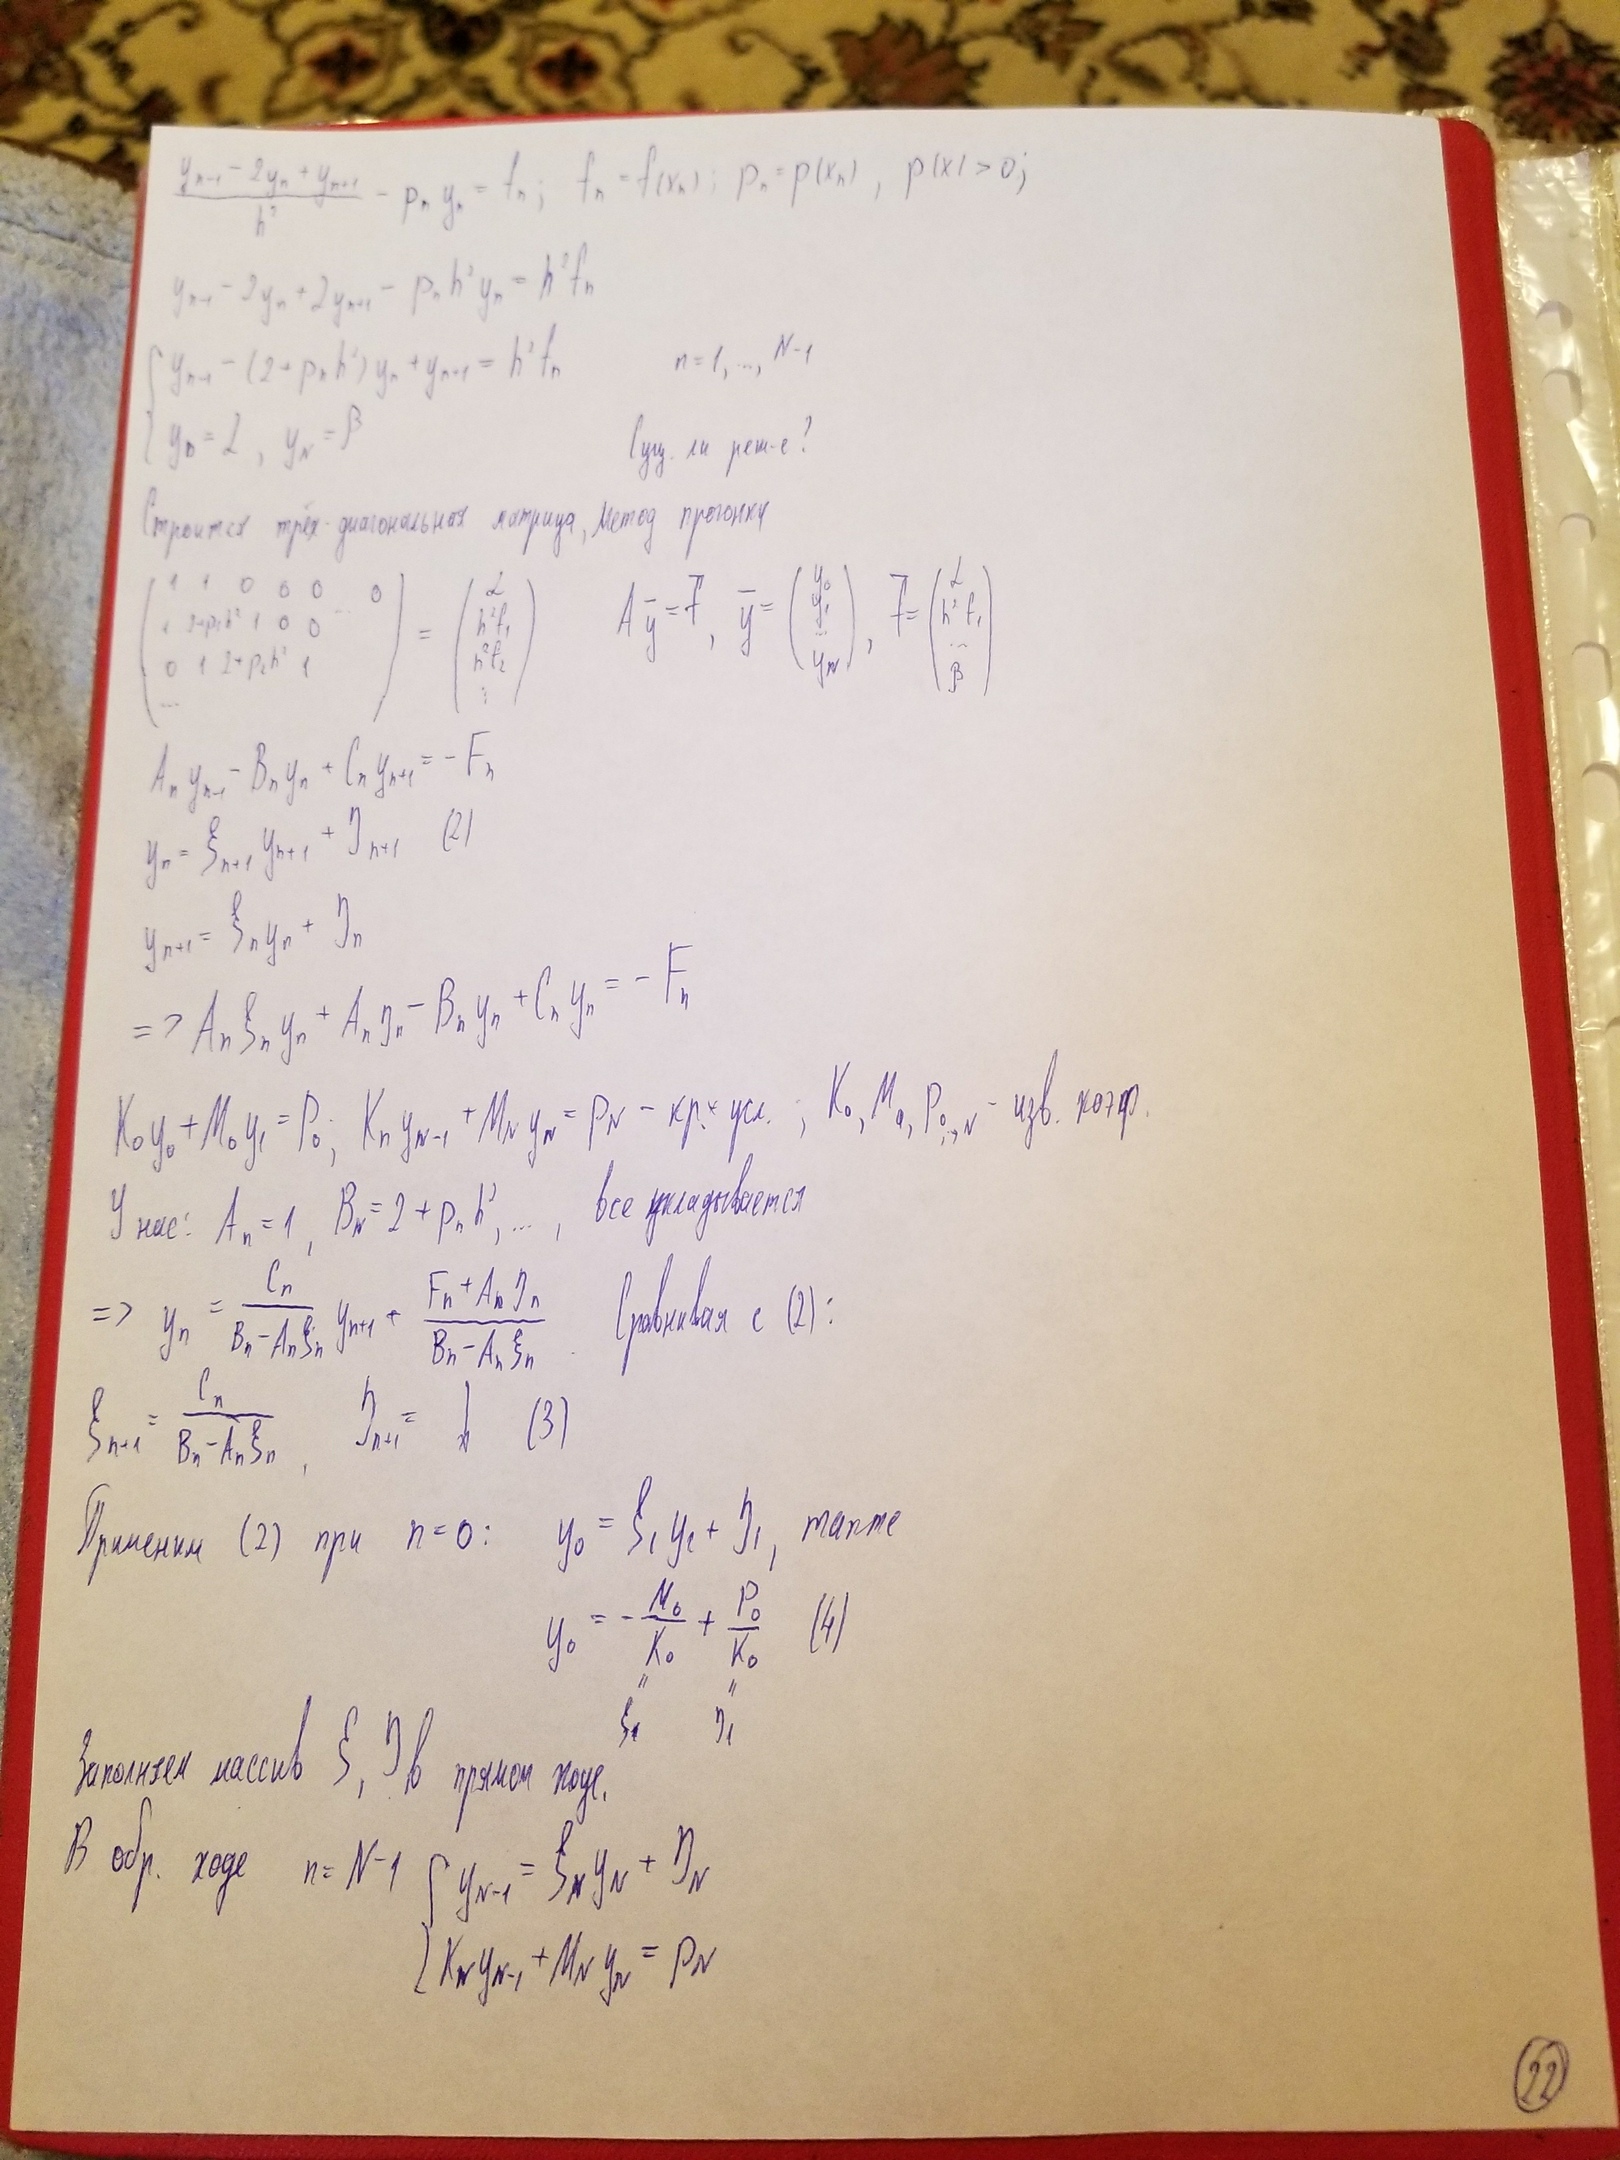 (yₙ₋₁ - 2yₙ + yₙ₊₁)/h² - pₙyₙ = fₙ; fₙ = f(xₙ); pₙ = p(xₙ), p(x) > 0;
yₙ₋₁ - 2yₙ + 2yₙ₊₁ - pₙh²yₙ = h²fₙ
{ yₙ₋₁ - (2 + pₙh²)yₙ + yₙ₊₁ = h²fₙ n = 1, ..., N-1
{ y₀ = α, y_N = β Сущ. ли реш-е?
Строится трёх-диагональная матрица, метод прогонки
(1 1 0 0 0 ... 0; 1 2+p₁h² 1 0 0; 0 1 2+p₂h² 1; ...) = (α; h²f₁; h²f₂; ⋮) Aȳ = F̄, ȳ = (y₀; y₁; ...; y_N), F̄ = (α; h²f₁; ...; β)
Aₙyₙ₋₁ - Bₙyₙ + Cₙyₙ₊₁ = -Fₙ
yₙ = ξₙ₊₁yₙ₊₁ + ηₙ₊₁ (2)
yₙ₊₁ = ξₙyₙ + ηₙ
=> Aₙξₙyₙ + Aₙηₙ - Bₙyₙ + Cₙyₙ = -Fₙ
K₀y₀ + M₀y₁ = P₀; Kₙy_N₋₁ + M_Ny_N = P_N - кр. усл.; K₀, M₀, P₀,..,N - изв. коэф.
У нас: Aₙ = 1, B_N = 2 + pₙh², ..., все укладывается
=> yₙ = Cₙ/(Bₙ - Aₙξₙ) yₙ₊₁ + (Fₙ + Aₙηₙ)/(Bₙ - Aₙξₙ). Сравнивая с (2):
ξₙ₊₁ = Cₙ/(Bₙ - Aₙξₙ), ηₙ₊₁ = (3)
Применим (2) при n = 0: y₀ = ξ₁y₁ + η₁, также
y₀ = -M₀/K₀ + P₀/K₀ (4)
" "
ξ₁ η₁
Заполняем массив ξ, η в прямом ходе.
В обр. ходе n = N-1 { y_N₋₁ = ξ_Ny_N + η_N
{ K_Ny_N₋₁ + M_Ny_N = P_N
22